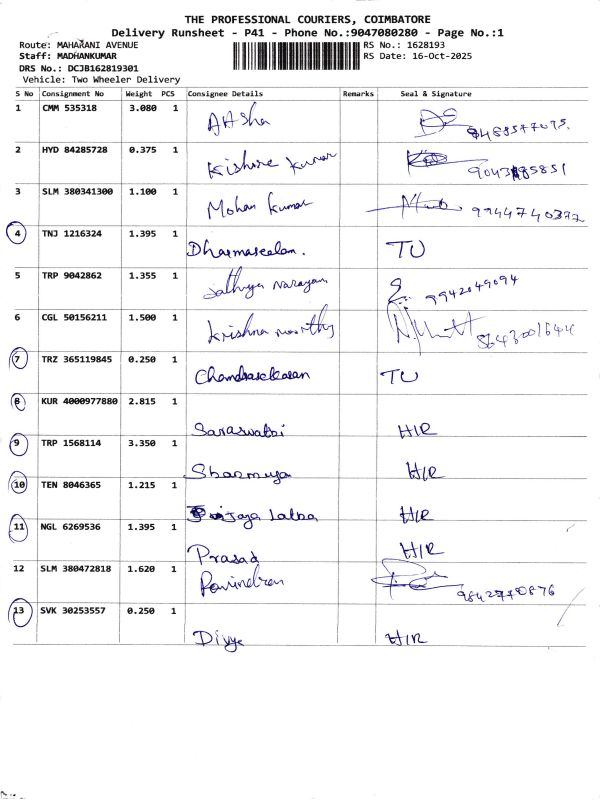 THE PROFESSIONAL COURIERS, COIMBATORE
Delivery Runsheet - P41 - Phone No.:9047080280 - Page No.:1
Route: MAHARANI AVENUE RS No.: 1628193
Staff: MADHANKUMAR RS Date: 16-Oct-2025
DRS No.: DCJB162819301
Vehicle: Two Wheeler Delivery
S No Consignment No Weight PCS Consignee Details Remarks Seal & Signature
1 CMM 535318 3.080 1
2 HYD 84285728 0.375 1 Kishore Kumar
3 SLM 380341300 1.100 1 Mohan Kumar
4 TNJ 1216324 1.395 1 Dharmaseelan. TU
5 TRP 9042862 1.355 1 Sathya Narayan 9942049094
6 CGL 50156211 1.500 1 Krishna moorthy
7 TRZ 365119845 0.250 1 Chandrasekaran TU
8 KUR 4000977880 2.815 1 Saraswathi H/R
9 TRP 1568114 3.350 1 H/R
10 TEN 8046365 1.215 1 H/R
11 NGL 6269536 1.395 1 Prasad H/R
12 SLM 380472818 1.620 1 Ravindran
13 SVK 30253557 0.250 1 Divya H/R